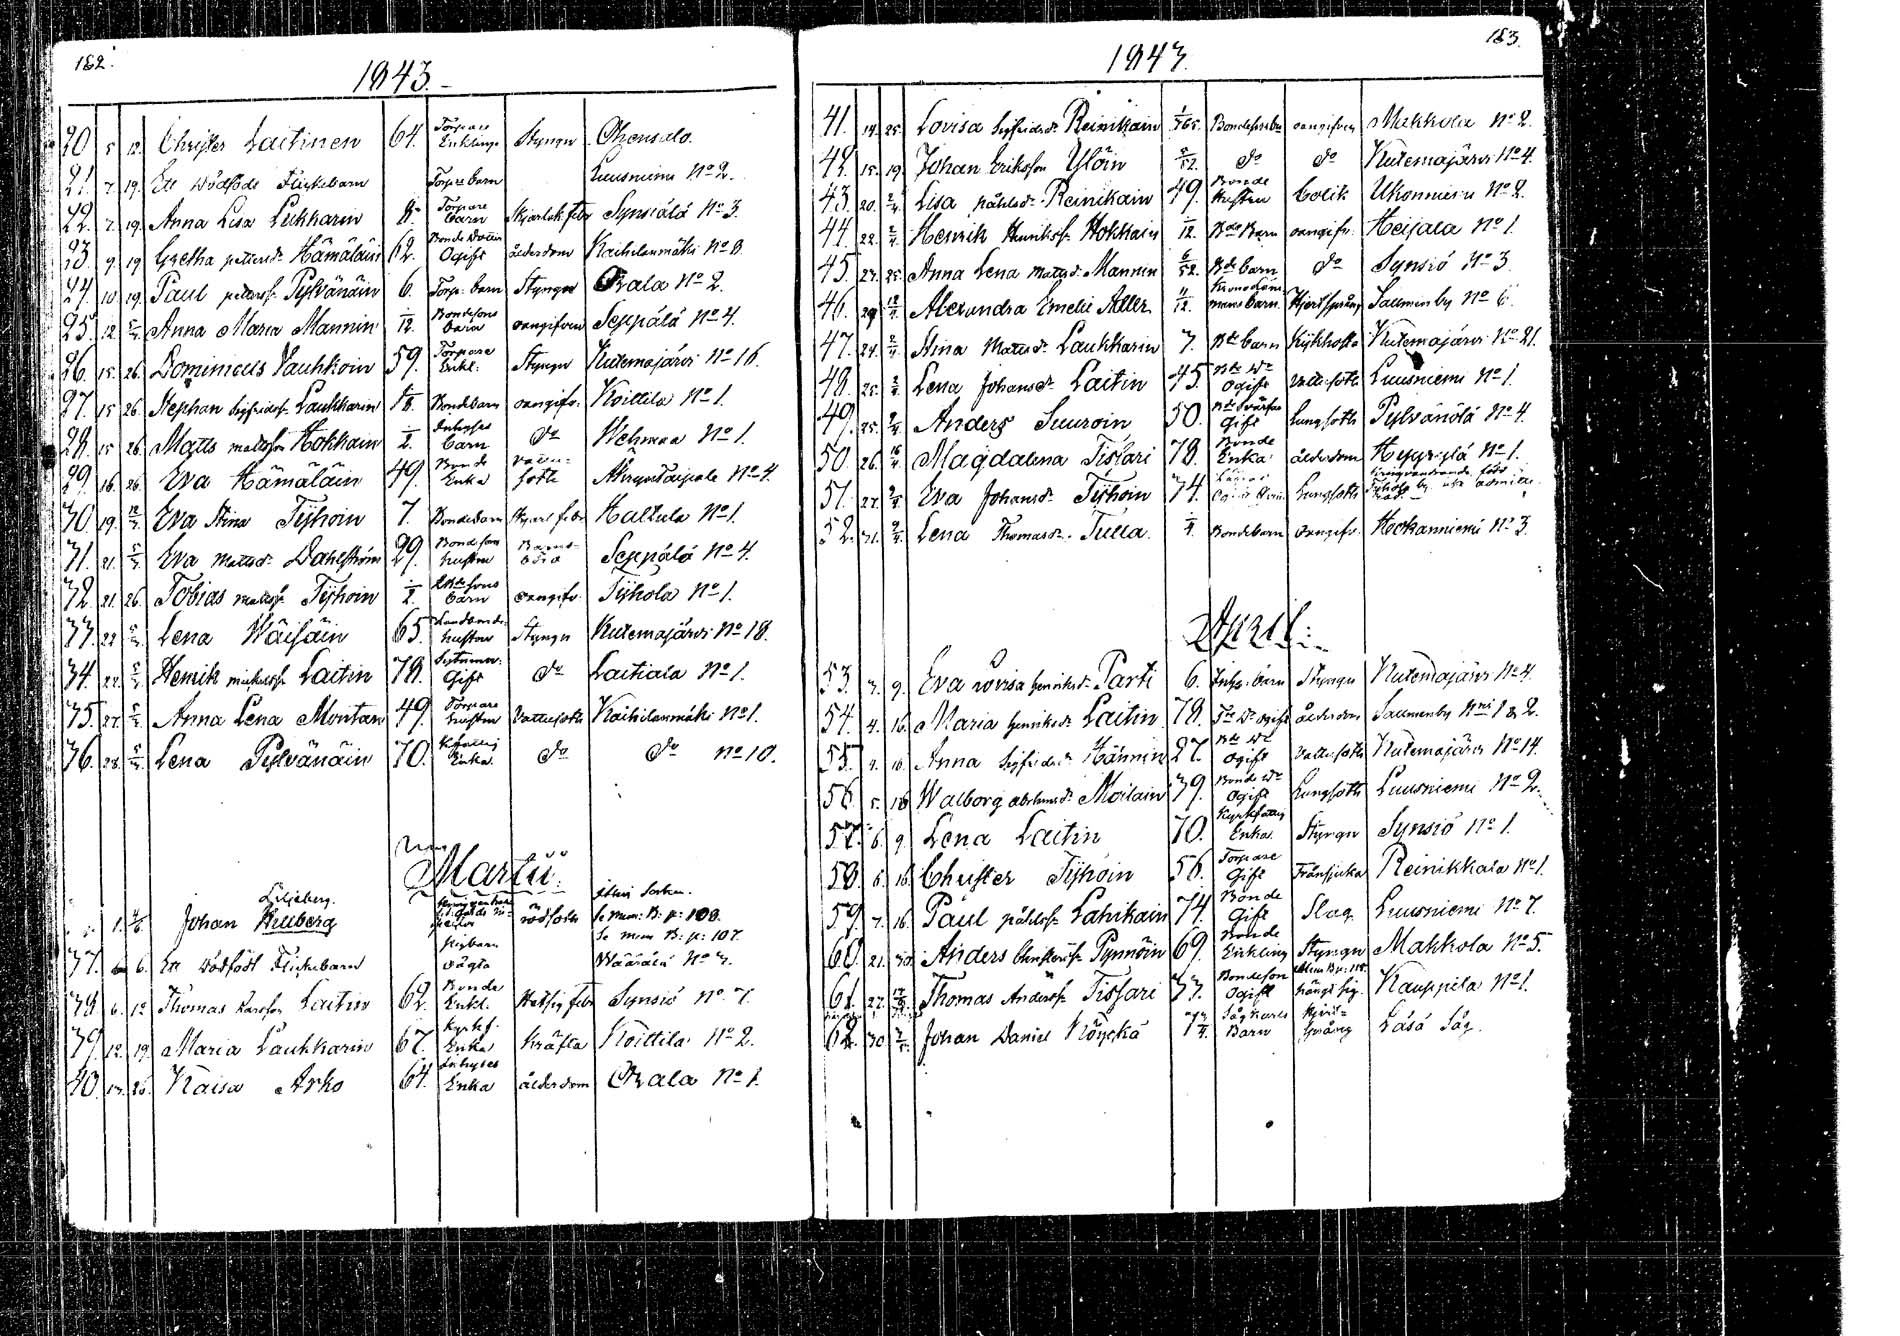 182.
1843.
20. 5. 12. Christer Laitinen 64. Torpare Enkling Styngn Ohensalo.
21. 7. 19. Ett dödfödt Flickebarn Torpare barn Luusniemi No 2.
22. 7. 19. Anna Lisa Lukkarin 8. Torpare barn Skarlak: feber Synsiälä No 3.
23. 9. 19. Gretha pettersdr Hämäläin 62. Bonde Ogift ålderdom Kaihilanmäki No 8.
24. 10. 19. Paul petterss: Pylvänäin 6. Torp: barn Styngn Orala No 2.
25. 12. Anna Maria Mannin 12. Bondesons barn oangifven Seppälä No 4.
26. 15. 26. Dominicus Vauhkoin 59. Torpare Enkl: Styngn Kutemajärvi No 16.
27. 15. 26. Stephan Sigfridss: Laukkarin Bondebarn oangifv. Koittila No 1.
28. 15. 26. Matts mattsson Hokkain 1/2. Inhyses barn do Wehmaa No 1.
29. 16. 26. Eva Hämäläin 49. Bonde Enka No 4.
30. 19. Eva Stina Tijhoin 7. Bondebarn Skarl: feber Haltula No 1.
31. 21. Eva Mattsdr Dahlström 29. Bondesons hustru Barns-börd Seppälä No 4.
32. 21. 26. Tobias mattss: Tijhoin 1/2. barn oangifv. Tijhola No 1.
33. 22. Lena Wäisäin 65. Landbonde hustru Styngn Kutemajärvi No 18.
34. 22. Henrik mickelss: Laitin 78. Sytning: Gift do Laitiala No 1.
35. 27. Anna Lena Montan 49. Torpare hustru Vattusoth Kaihilanmäki No 1.
36. 28. Lena Pylvänäin 70. Enka do do No 10.
Martii:
Liljeberg.
1. Johan Kruberg rödsoth Se mem: B: p: 108.
Se mem B: p: 107.
37. 6. Ett dödfödt Flickebarn No 3.
38. 6. 12. Thomas Larsson Laitin 62. Bonde Enkl. Hetsig feber Synsiö No 7.
39. 12. 19. Maria Laukkarin 67. Kyrkf. Enka Kräfta Koittila No 2.
40. 17. 26. Kaisa Arko 64. Inhyses Enka ålderdom Orala No 1.
183.
1843.
41. 14. 25. Lovisa Sigfridsdr Reinikain 1/365. oangifven Makkola No 2.
42. 15. 19. Johan Eriksson Ylöin 5/52. do do Kutemajärvi No 4.
43. 20. 2/4. Lisa påhlsdr Reinikain 49. Bonde hustru Colik Ukonniemi No 2.
44. 22. 2/4. Henrik Henrikss: Hokkain 1/12. Bde Barn oangifv. Heijala No 1.
45. 27. 25. Anna Lena Mattsdr Mannin 6/52. Bde barn do Synsiö No 3.
46. 29. Alexandra Emelie Adler 11/12. barn Hjertsprång Saumenby No 6.
47. 24. 2/4. Stina Mattsdr Laukkarin 7. Bde barn Kijkhosta Kutemajärvi No 21.
48. 25. 2/4. Lena Johansdr Laitin 45. Bde Dr Ogift Vattusoth Luusniemi No 1.
49. 25. 2/4. Anders Suuroin 50. Bde Svärfar Gift Lungsoth Pylvänälä No 4.
50. 26. 16/4. Magdalena Tissari 78. Bonde Enka ålderdom Hyyrylä No 1.
51. 27. 2/4. Eva Johansdr Tijhoin 74. Lungsoth kringvandrande född i Tijhola by
52. 31. 2/4. Lena Thomasdr Tulla. Bondebarn oangifv. Hokanniemi No 3.
April:
53. 3. 9. Eva Lovisa Henriksdr Parti 6. Inhys: barn Styngn Kutemajärvi No 4.
54. 4. 16. Maria Henriksdr Laitin 78. Tr Dr Ogift ålderdom Saumenby Nri 1 & 2.
55. 4. 16. Anna Sigfridsdr Hännin 27. Bde Dr Ogift Vattusoth Kutemajärvi No 14.
56. 5. 16. Walborg Abrahmsdr Moilain 39. Bonde Dr Ogift Lungsoth Luusniemi No 2.
57. 6. 9. Lena Laitin 70. Kyrkfattig Enka Styngn Synsiö No 1.
58. 6. 16. Christer Tijhoin 56. Torpare Gift Fransjuka Reinikkala No 1.
59. 7. 16. Paul påhlss: Lahikain 74. Bonde Gift Slag Luusniemi No 7.
60. 21. 30. Anders Christerss: Pynnöin 69. Bonde Enkling Styngn Makkola No 5.
61. 27. Thomas Anderss: Tissari 33. Bondeson Ogift hängt sig. Kauppila No 1.
62. 30. Johan Daniel Köyckä Sågkarls Barn Hjert-språng Läsä Såg.